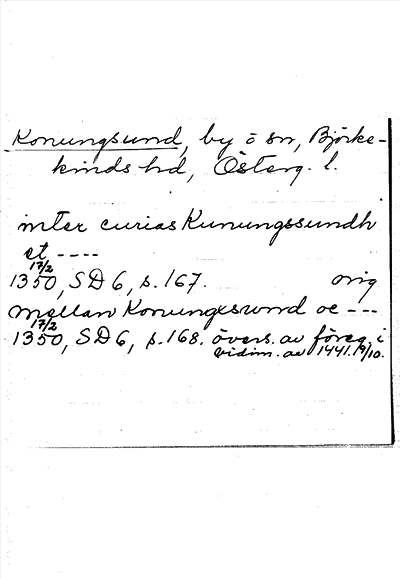 Konungsund, by o sn, Björke-
kinds hd, Österg. l.
inter curias Kunungssundh
et ----
17/2
1350, SD 6, s. 167. orig
mellan Konungesund oc ---
17/2
1350, SD 6, s. 168. övers. av föreg. i
vidim. av 1441.19/10.